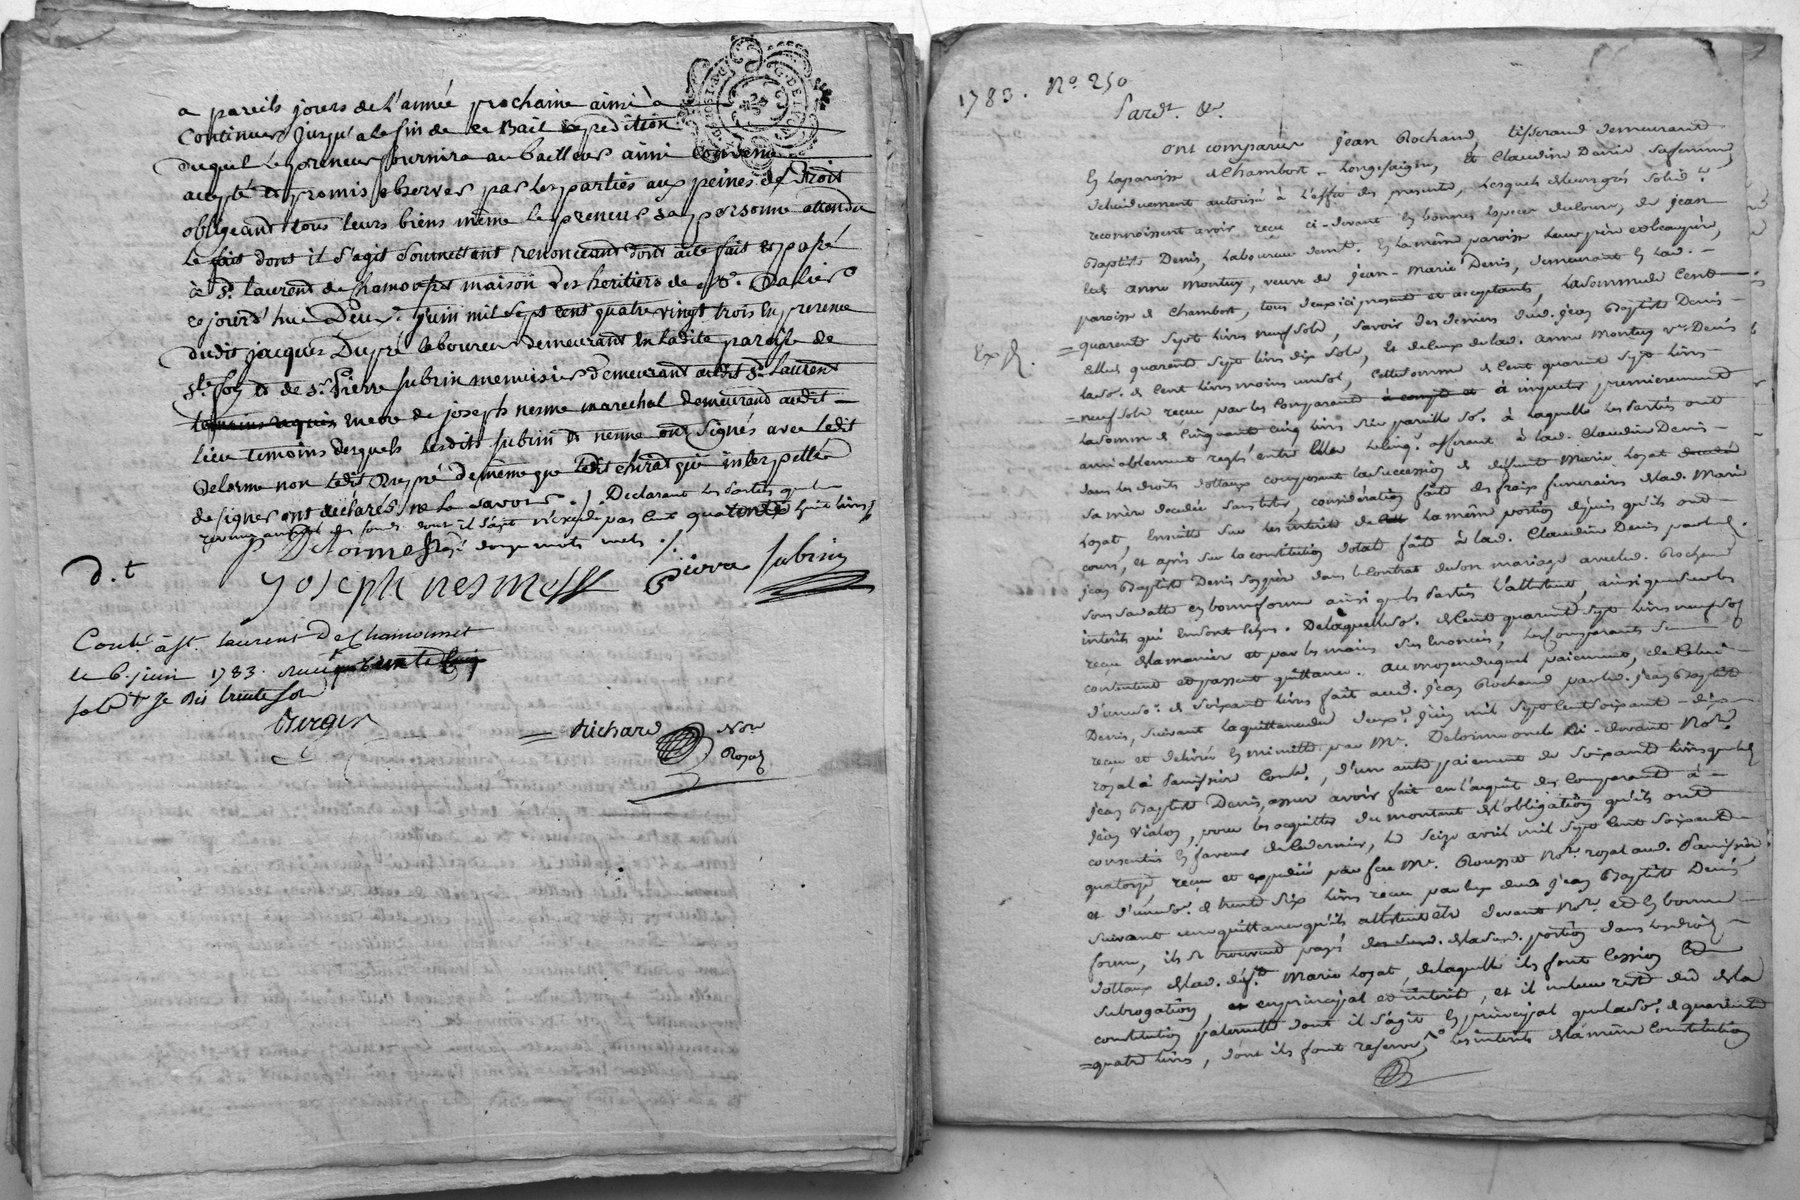 a pareils jours de l'année prochaine ainsi à
continuer jusqu'a la fin de ce Bail expedition
duquel le preneur fournira au bailleur ainsi convenu
accepté et promis observer par les parties aux peines de Droit
obligeant tous leurs biens même le preneur sa personne attendu
le fait dont il s'agit soumettant renonceant dont acte fait et passé
à St. Laurent de Chamousset maison des heritiers de Mr. Dalier
cejourd'hui Deux juin mil sept cent quatre vingt trois en presence
dudit jacques Dupré laboureur demeurant en ladite paroisse de
Ste foy et de Sr. Pierre Subrin menuisier demeurant audit St. Laurent
temoins requis et de joseph nesme marechal demeurant audit
lieu temoins desquels lesdits Subrin et nesme ont signés avec ledit
Delorme non ledit Dupré de même que ledit chirat qui interpellés
de signer ont declarés ne le savoir. Declarant les parties que le
revenu annuel des fonds dont il s'agit n'excede pas cent quarante huit livres
P Delorme douze mots nuls
d.t
joseph nesme Pierre Subrin
Conlé à St. laurent de Chamousset
le 6. juin 1783. reçu
sols je dis trente sols
Burger
= Richard Nore
Royal
1783. No. 250
Pardt. &c.
ont comparus jean Rochand, tisserand demeurant
en la paroisse de Chambost-Longesaigne, et Claudine Denis sa femme,
de lui duement autorisé à l'effet des presente, lesquels de leurs grés solidt.
reconnoissent avoir reçu ci-devant en bonnes especes de cours, de jean
Baptiste Denis, laboureur demt. en la même paroisse leur frère et beaufrère,
et de anne montuy, veuve de jean-Marie Denis, demeurant en lad.
paroisse de Chambost, tous deux ici present et acceptants, la somme de cent
Ex. R.
= quarente sept livres neuf sols, savoir des deniers dud. jean Baptiste Denis
celle de quarente sept livres dix sols, et de ceux de lad. anne montuy ve. Denis
la so. de cent livres moins un sol, cette somme de cent quarente sept livres
= neuf sols reçue par les comparans à imputer, premierement
la somme de cinquante cinq livres sur pareille so. à laquelle les parties ont
amiablement reglés entre elles afferant à lad. Claudine Denis
dans les droits dottaux composant la succession de defunte Marie Loyat
sa mère decedée sans tester, consideration faite des fraix funeraires de lad. Marie
Loyat, ensuitte sur les interets de la même portion depuis qu'ils ont
couru, et après sur la constitution dotale faite à lad. Claudine Denis par led.
jean Baptiste Denis son père dans le contrat de son mariage avec led. Rochand
sous sa datte en bonne forme ainsi que les parties l'attestent, ainsi que sur les
interets qui en sont echus. De laquelle so. de cent quarente sept livres neuf sols
reçue de la maniere et par les mains sus enoncés, les comparants se
contentent et passent quittance. au moyen duquel paiement, de celui
d'une so. de soixante livres fait aud. jean Rochand par led. jean Baptiste
Denis, suivant la quittance du deuxe. juin mil sept cent soixante-dix
reçue et delivrée en minutte par Me. Delorme oncle ci-devant Nore.
royal à Panissière Conle., d'un autre paiement de soixante livres que led.
jean Baptiste Denis, assure avoir fait en l'acquit des comparants à
jean Vialon, pour les acquitter du montant de l'obligation qu'ils ont
consentis en faveur de ce dernier, le seize avril mil sept cent soixante
quatorze reçue et expediée par feu Me. Rousset Nore. royal aud. Panissière,
et d'une so. de trente six livres reçue par eux dud. jean Baptiste Denis
suivant une quittance qu'ils attestent être devant Nore. et en bonne
forme, ils se trouvent payés de lad. portion dans les droits
dottaux de lad. defte. Marie Loyat, de laquelle ils font cession et
subrogation, en principal et interets, et il ne leur reste dû de la
constitution paternelle dont il s'agit en principal que la so. de quarente
= quatre livres, dont ils font reserve, les interets de la même constitution